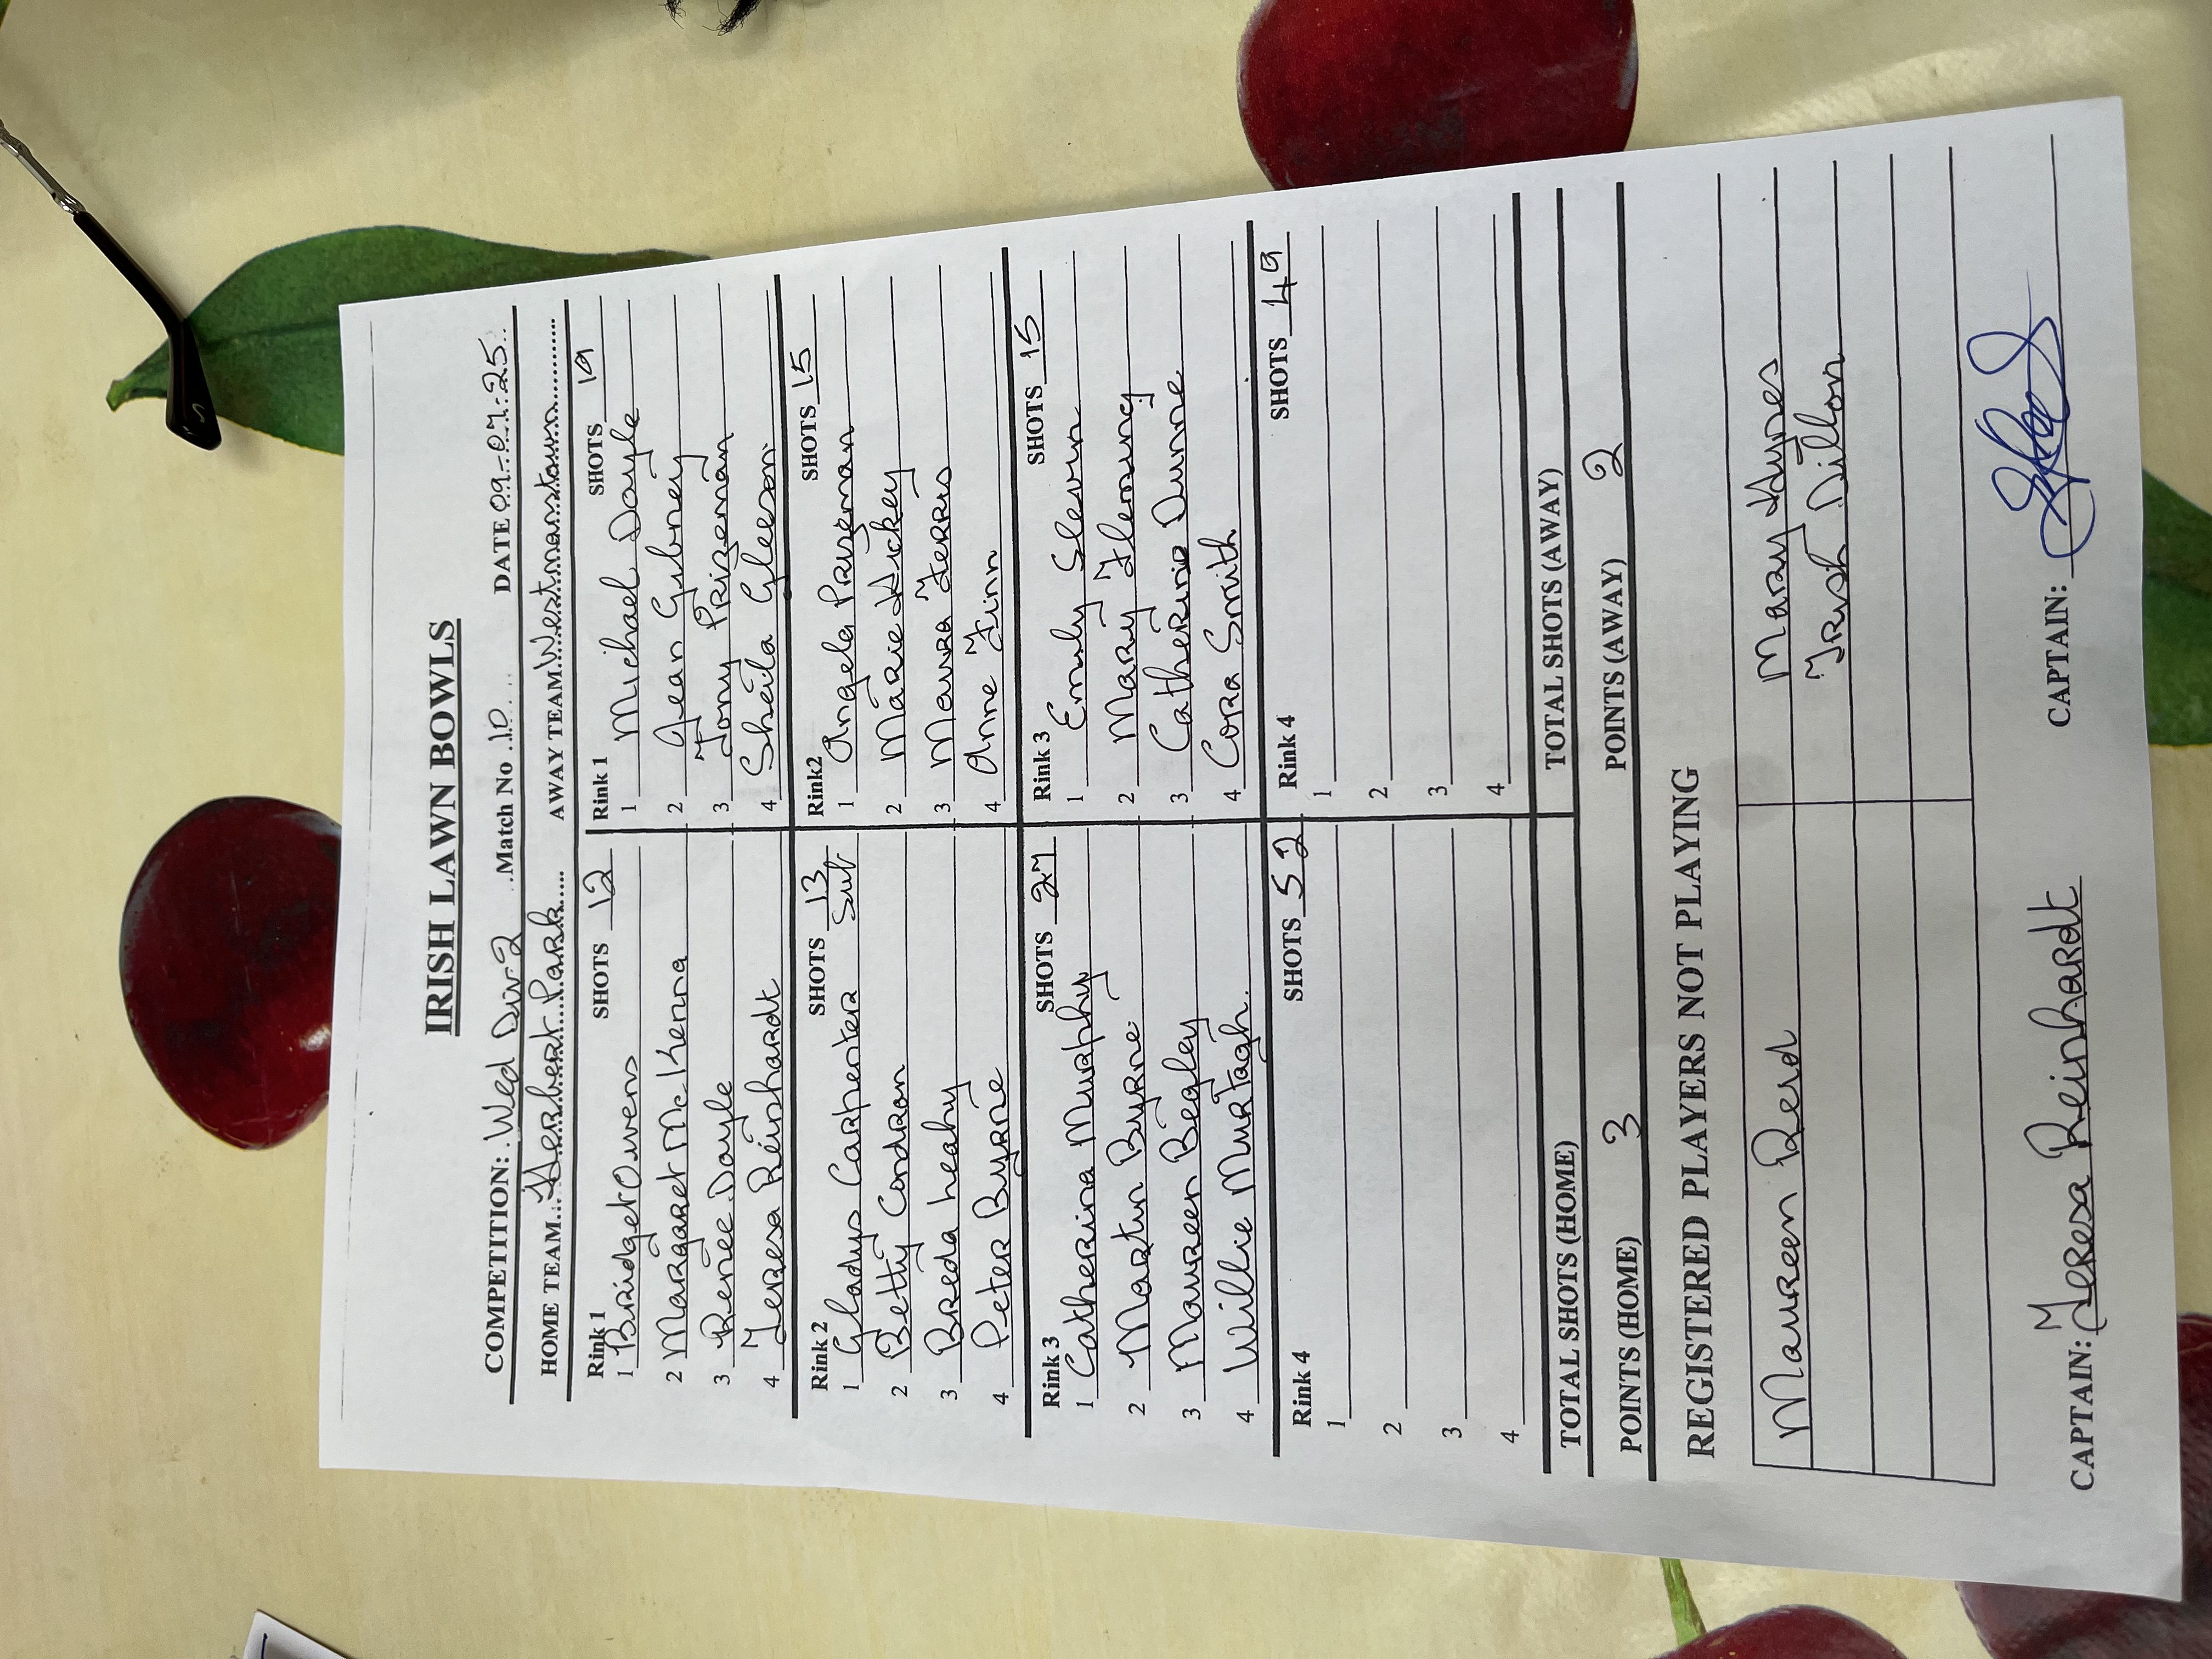 IRISH LAWN BOWLS
COMPETITION: Wed Div 2 Match No 10 DATE 09-07-25
HOME TEAM Herbert Park AWAY TEAM Westmanstown
Rink 1 SHOTS 12
1 Bridget Owens
2 Margaret McKenna
3 Renée Doyle
4 Teresa Reinhardt
Rink 1 SHOTS 19
1 Michael Doyle
2 Jean Gibney
3 Tony Prizeman
4 Sheila Gleeson
Rink 2 SHOTS 13
1 Gladys Carpenter Sub
2 Betty Condron
3 Breda Leahy
4 Peter Byrne
Rink2 SHOTS 15
1 Angela Prizeman
2 Marie Hickey
3 Maura Ferris
4 Anne Finn
Rink 3 SHOTS 27
1 Catherina Murphy
2 Martin Byrne
3 Maureen Begley
4 Willie Murtagh
Rink 3 SHOTS 15
1 Emily Slevin
2 Mary Fleming
3 Catherine Dunne
4 Cora Smith
Rink 4 SHOTS 52
1
2
3
4
Rink 4 SHOTS 49
1
2
3
4
TOTAL SHOTS (HOME) TOTAL SHOTS (AWAY)
POINTS (HOME) 3 POINTS (AWAY) 2
REGISTERED PLAYERS NOT PLAYING
Maureen Reid Mary Hynes
Trish Dillon
CAPTAIN: Teresa Reinhardt CAPTAIN: